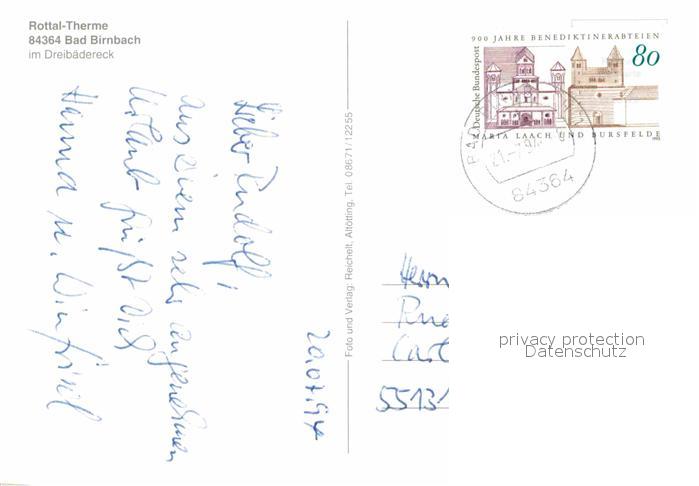 Rottal-Therme
84364 Bad Birnbach
im Dreibädereck
Lieber Rudolf,
aus einem sehr angenehmen
Urlaub grüßt Dich
Hanna u. Winfried
20.07.94
Foto und Verlag: Reichelt, Altötting, Tel. 0 86 71 / 1 22 55
900 JAHRE BENEDIKTINERABTEIEN
80
Deutsche Bundespost
MARIA LAACH UND BURSFELDE
21.-7.94
84364
Herrn
55131
privacy protection
Datenschutz